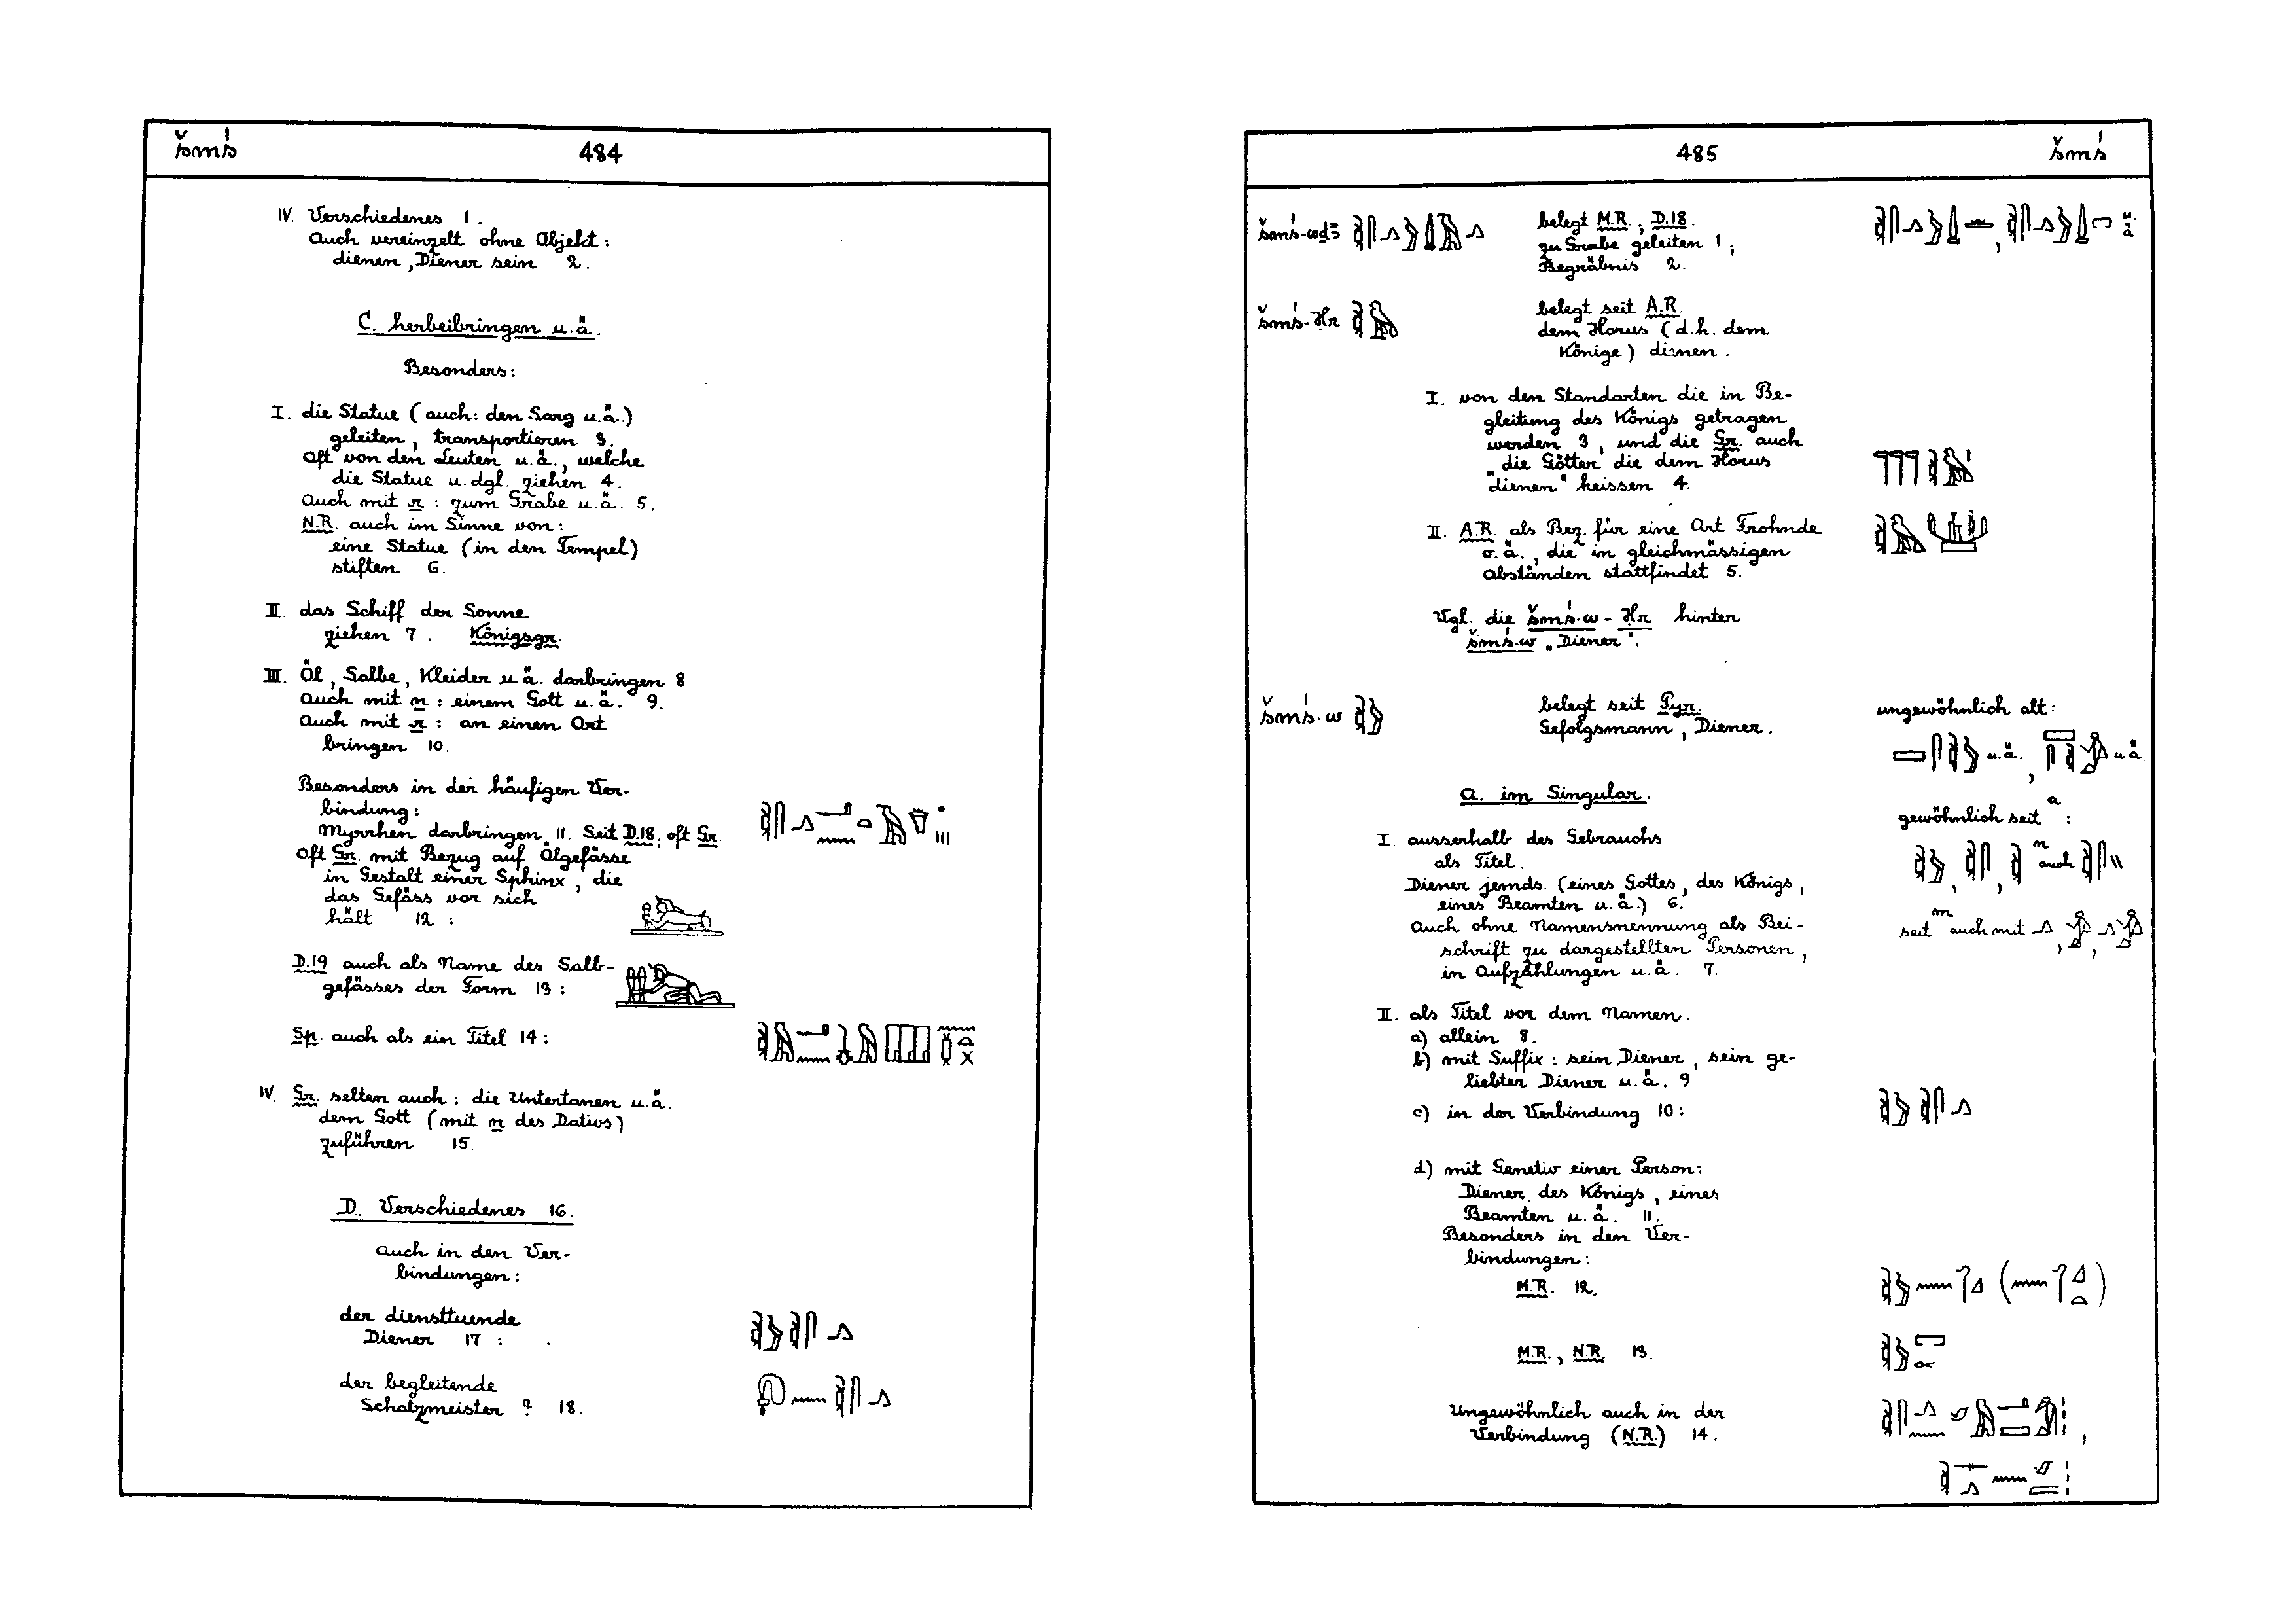 šmś
484
IV. Verschiedenes 1.
Auch vereinzelt ohne Objekt:
dienen, Diener sein 2.
C. herbeibringen u.ä.
Besonders:
I. die Statue (auch: den Sarg u.ä.)
geleiten, transportieren 3.
Oft von den Leuten u.ä., welche
die Statue u.dgl. ziehen 4.
Auch mit r : zum Grabe u.ä. 5.
N.R. auch im Sinne von:
eine Statue (in den Tempel)
stiften 6.
II. das Schiff der Sonne
ziehen 7. Königsgr.
III. Öl, Salbe, Kleider u.ä. darbringen 8
Auch mit n : einem Gott u.ä. 9.
Auch mit r : an einen Ort
bringen 10.
Besonders in der häufigen Ver-
bindung:
Myrrhen darbringen 11. Seit D.18, oft Gr.
Oft Gr. mit Bezug auf Ölgefässe
in Gestalt einer Sphinx, die
das Gefäss vor sich
hält 12 :
D.19 auch als Name des Salb-
gefässes der Form 13 :
Sp. auch als ein Titel 14 :
IV. Gr. selten auch : die Untertanen u.ä.
dem Gott (mit n des Dativs)
zuführen 15.
D. Verschiedenes 16.
Auch in den Ver-
bindungen :
der diensttuende
Diener 17 :
der begleitende
Schatzmeister ? 18.
485
šmś
šmś-wḏꜣ
belegt M.R., D.18.
zu Grabe geleiten 1 ;
Begräbnis 2.
u.ä.
šmś-Ḥr
belegt seit A.R.
dem Horus (d.h. dem
Könige) dienen.
I. von den Standarten die in Be-
gleitung des Königs getragen
werden 3, und die Gr. auch
„die Götter die dem Horus
dienen" heissen 4.
II. A.R. als Bez. für eine Art Frohnde
o.ä., die in gleichmässigen
Abständen stattfindet 5.
Vgl. die šmś.w - Ḥr hinter
šmś.w „Diener".
šmś.w
belegt seit Pyr.
Gefolgsmann, Diener.
ungewöhnlich alt:
u.ä. , u.ä.
a. im Singular.
gewöhnlich seit a :
n auch
seit m auch mit
I. ausserhalb des Gebrauchs
als Titel.
Diener jemds. (eines Gottes, des Königs,
eines Beamten u.ä.) 6.
Auch ohne Namensnennung als Bei-
schrift zu dargestellten Personen,
in Aufzählungen u.ä. 7.
II. als Titel vor dem Namen.
a) allein 8.
b) mit Suffix : sein Diener, sein ge-
liebter Diener u.ä. 9
c) in der Verbindung 10 :
d) mit Genetiv einer Person :
Diener des Königs, eines
Beamten u.ä. 11.
Besonders in den Ver-
bindungen :
M.R. 12.
M.R., N.R. 13.
Ungewöhnlich auch in der
Verbindung (N.R.) 14.